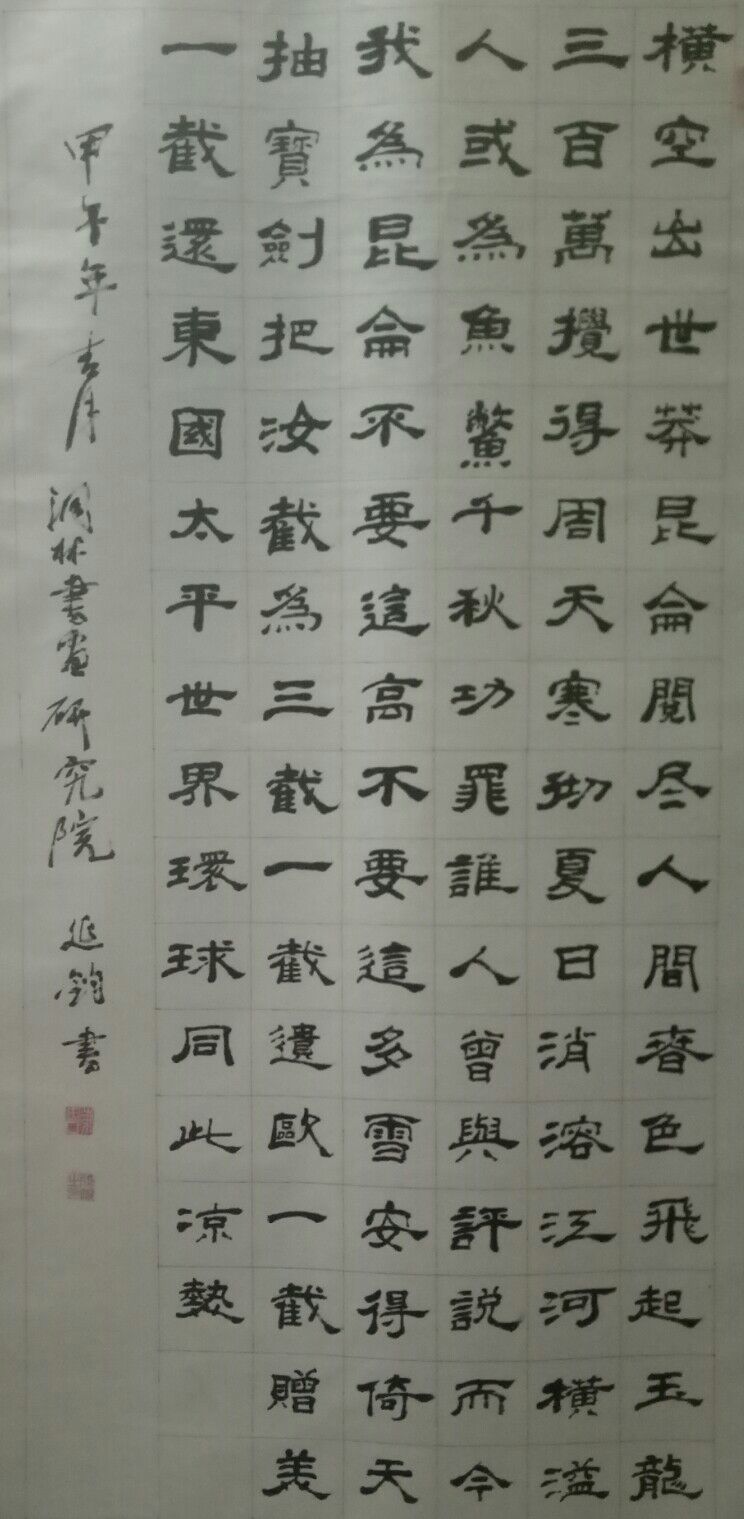 横空出世莽昆侖閱尽人間春色飛起玉龍
三百萬攪得周天寒彻夏日消溶江河横溢
人或為魚鱉千秋功罪誰人曾與評説而今
我為昆侖不要這高不要這多雪安得倚天
抽寶劍把汝截為三截一截遺歐一截贈美
一截還東國太平世界環球同此凉熱
甲午年月林書畫研究院 延鈞書